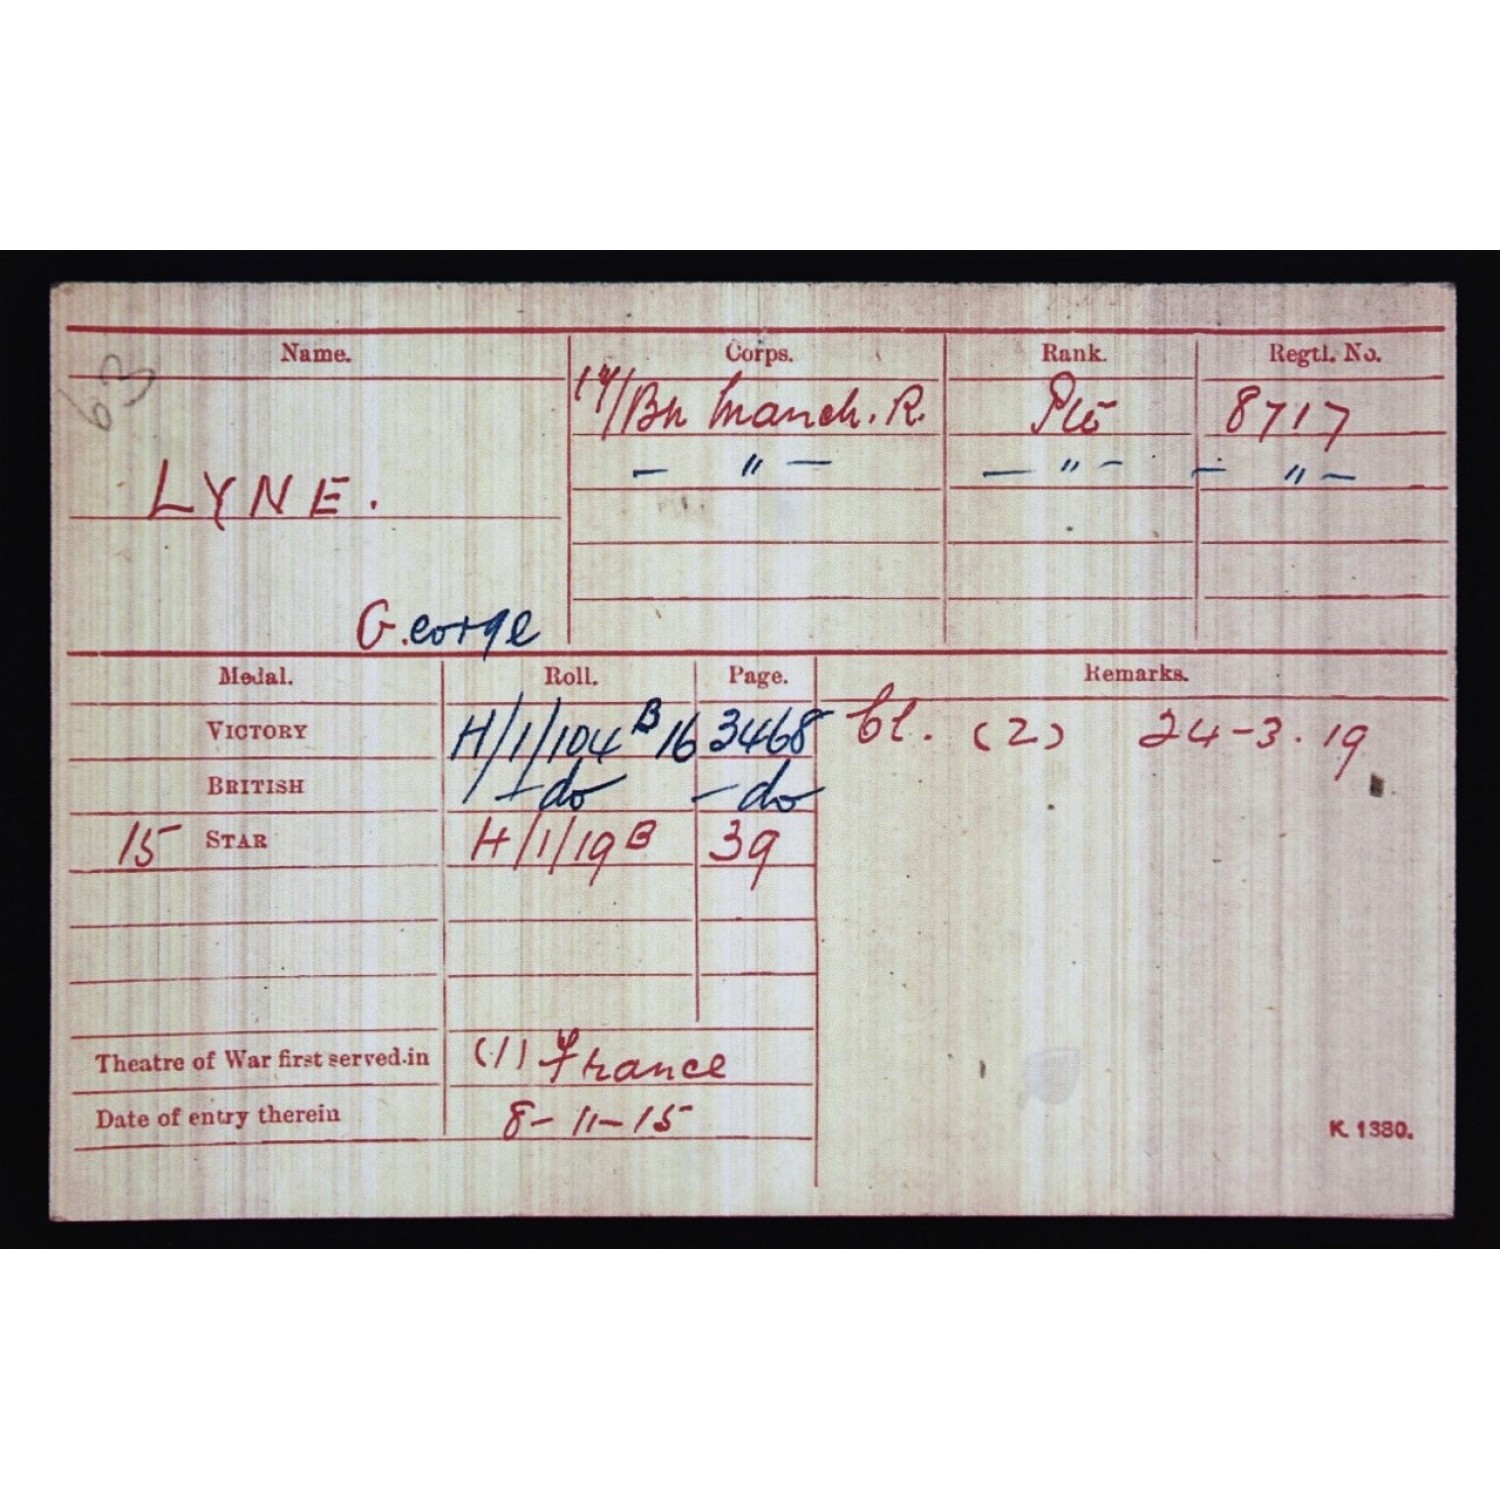 63
Name. Corps. Rank. Regtl. No.
17/Bn Manch. R. Pte 8717
— " — — " — — " —
LYNE.
G.eorge
Medal. Roll. Page. Remarks.
VICTORY H/1/104 B 16 3468 Cl. (2) 24-3.19
BRITISH - do - do
15 STAR H/1/19 B 39
Theatre of War first served in (1) France
Date of entry therein 8-11-15
K. 1380.